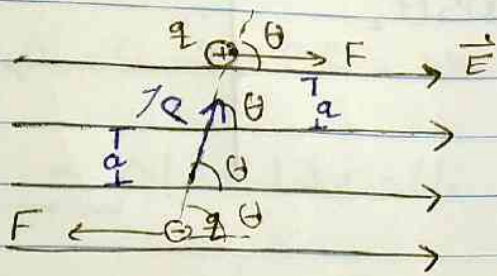 q + θ F E
P θ a
a θ
F - q θ